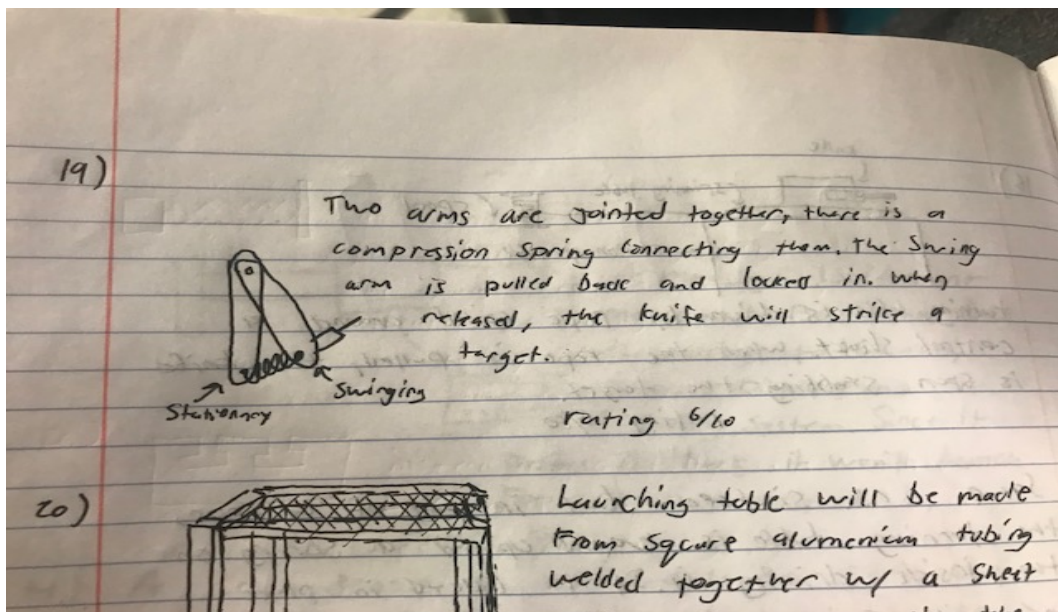 19)
Two arms are jointed together, there is a
compression spring connecting them. The swing
arm is pulled back and locked in. when
released, the knife will strike a
target.
Stationary
Swinging
rating 6/10
20)
Launching table will be made
From square alumenium tubing
welded together w/ a sheet